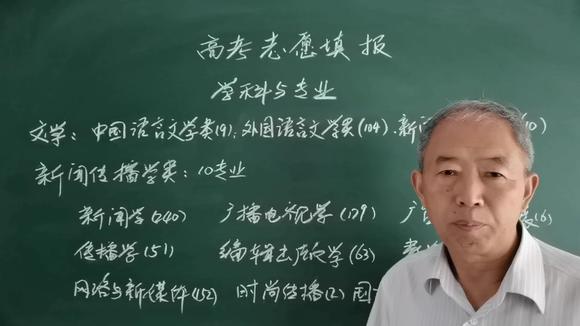 高考志愿填报
学科与专业
文学：中国语言文学类(9)；外国语言文学类(104)、新闻 10)
新闻传播学类：10专业
新闻学(240) 广播电视学(109) 广 (6)
传播学(51) 编辑出版学(63)
网络与新媒体(152) 时尚传播(2)